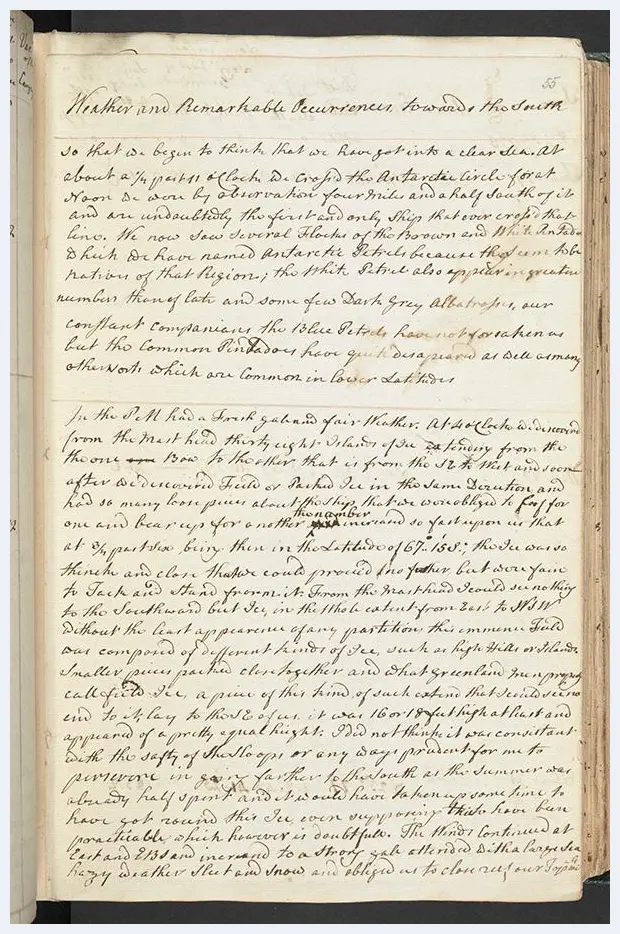 55
Weather and Remarkable Occurrences towards the South
so that we begin to think that we have got into a clear Sea. At
about a 1/4 past 11 o'Clock we cross'd the Antarctic Circle for at
Noon we were by observation four Miles and a half South of it
and are undoubtedly the first and only Ship that ever cross'd that
line. We now saw several Flocks of the Brown and White Pintadoes
which we have named Antarctic Petrels because they seem to be
natives of that Region; the White Petrels also appear in greater
numbers than of late and some few Dark Grey Albatrosses, our
constant companions the Blue Petrels have not forsaken us
but the Common Pintadoes have quite disapeared as well as many
other sorts which are Common in lower Latitudes
In the PM had a Fresh gale and fair Weather. At 4 o'Clock we discoverd
from the Mast head thirty eight Islands of Ice extending from the
the one Bow to the other that is from the SE to West and soon
after we discovered Field or Packed Ice in the Same Direction and
had so many loose pieces about the Ship that we were obliged to loof for
one and bear up for a nother the number increased so fast upon us that
at 3/4 past Six being then in the Latitude of 67° 15' S: the Ice was so
thick and close that we could proceed no further but were fain
to Tack and Stand from it. From the mast head I could see nothing
to the Southward but Ice, in the Whole extent from East to WSW
without the least appearence of any partition, this immence Field
was composed of different kinds of Ice, such as high Hills or Islands
Smaller pieces packed close together and what Greenland men properly
call field Ice, a piece of this kind of such extend that I could see no
end to it, lay to the SE of us it was 16 or 18 feet high at least and
appeared of a pretty equal height. I did not think it was consistant
with the safty of the Sloops or any ways prudent for me to
persevere in going farther to the South as the Summer was
already half spent and it would have taken up some time to
have got round this Ice even supposing this to have been
practicable, which however is doubtfull. The Winds Continued at
East and EBS and increased to a strong gale attended with a large Sea
hazy weather Sleet and Snow and obliged us to close reef our Topsails